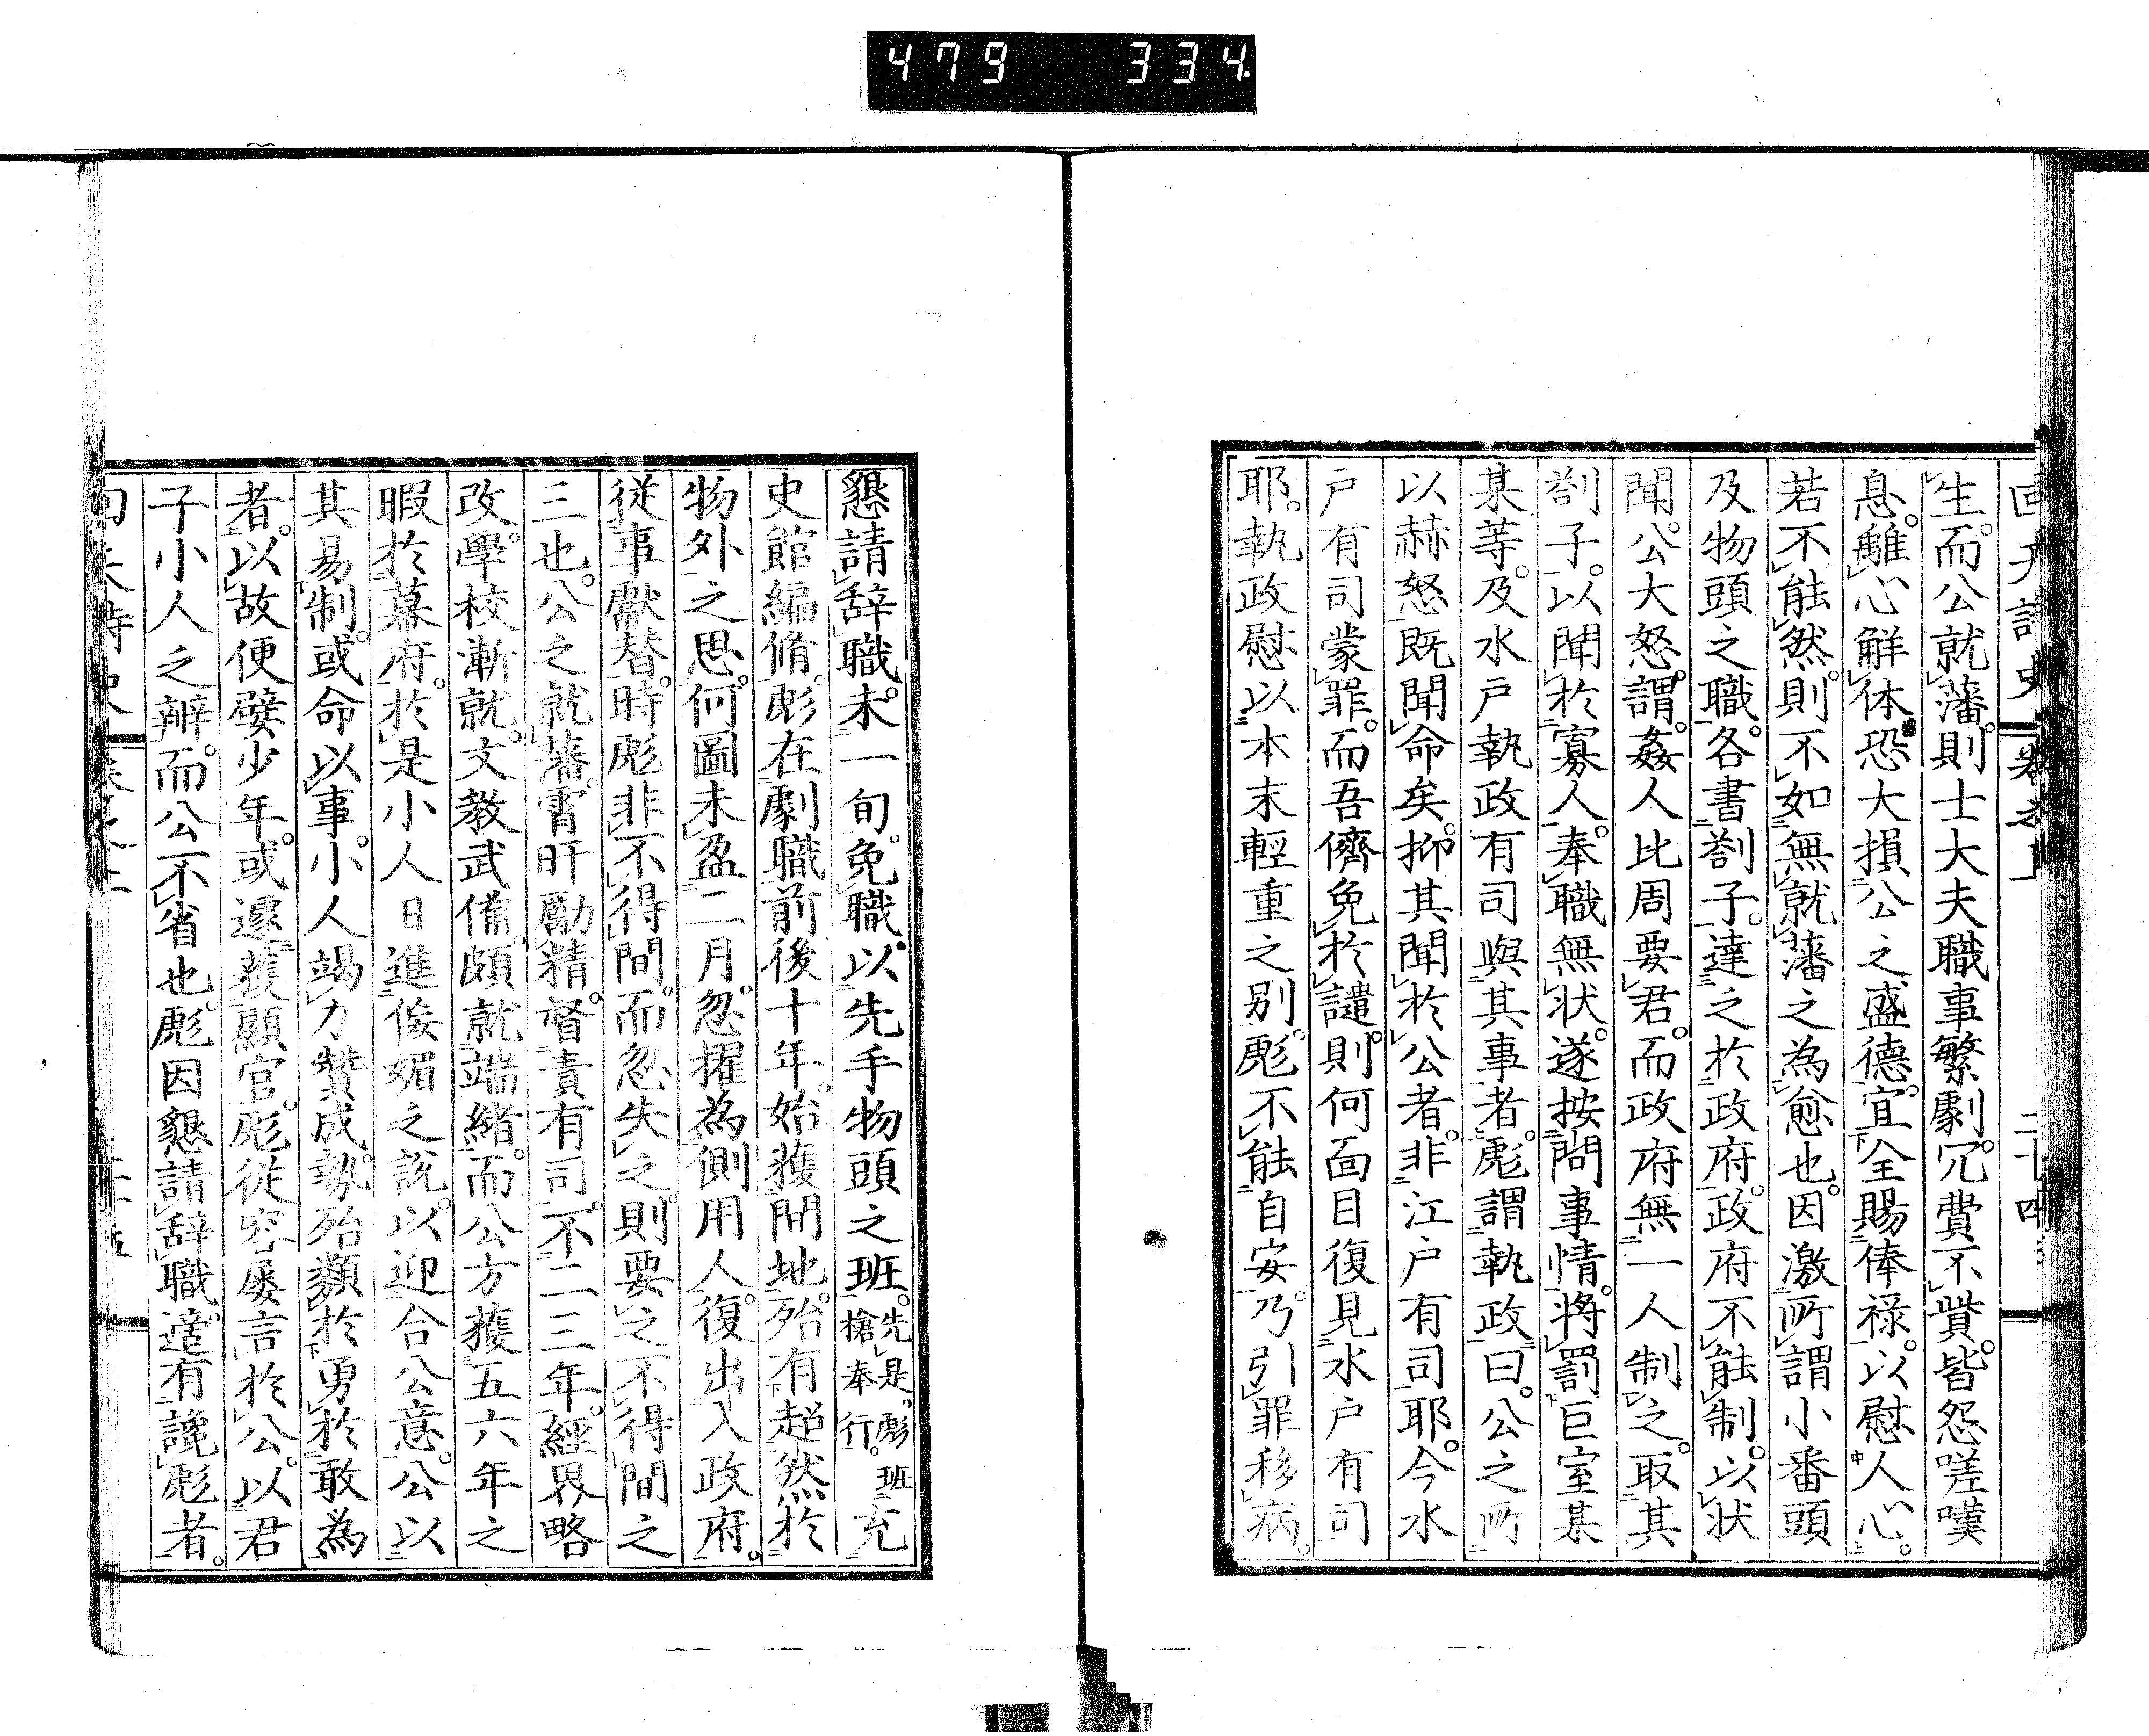 479 334
回天詩史 卷之上 二十四
生。而公就藩。則士大夫職事繁劇。冗費不貲。皆怨嗟嘆
息。離心解体。恐大損公之盛德。宜全賜俸祿。以慰人心。
若不能然。則不如無就藩之為愈也。因激所謂小番頭
及物頭之職。各書劄子。達之於政府。政府不能制。以状
聞。公大怒。謂。姦人比周要君。而政府無一人制之。取其
劄子。以聞於寡人。奉職無状。遂按問事情。將罰巨室某
某等。及水戸執政有司與其事者。彪謂執政曰。公之所
以赫怒。既聞命矣。抑其聞於公者。非江戸有司耶。今水
戸有司蒙罪。而吾儕免於譴。則何面目復見水戸有司
耶。執政慰以本末輕重之别。彪不能自安。乃引罪移病。
懇請辭職。未一旬。免職。以先手物頭之班。先是。彪班槍奉行。充
史館編脩。彪在劇職前後十年。始獲閒地。殆有超然於
物外之思。何圖未盈二月。忽擢為側用人。復出入政府。
従事獻替。時彪非不得間。而忽失之。則要之不得間之
三也。公之就藩。宵旰勵精。督責有司。不二三年。經界略
改。學校漸就。文教武備。頗就端緒。而公方獲五六年之
暇於幕府。於是小人日進佞媚之説。以迎合公意。公以
其易制。或命以事。小人竭力贊成。勢殆類於勇於敢為
者。以故便嬖少年。或遽獲顯官。彪従容屡言於公。以君
子小人之辨。而公不省也。彪因懇請辭職。適有讒彪者。